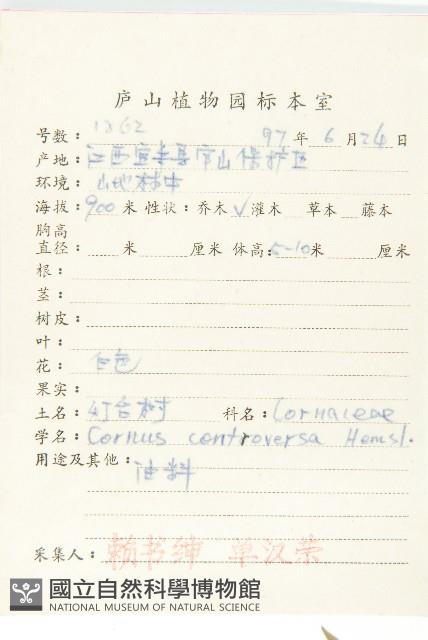 庐山植物园标本室
号数：1262 97年6月24日
产地：江西宜丰县官山保护区
环境：山地林中
海拔：900米 性状：乔木√灌木 草本 藤本
胸高
直径： 米 厘米 体高：5-10米 厘米
根：
茎：
树皮：
叶：
花：白色
果实：
土名：灯台树 科名：Cornaceae
学名：Cornus controversa Hemsl.
用途及其他：油料
采集人：赖书绅 单汉荣
國立自然科學博物館
NATIONAL MUSEUM OF NATURAL SCIENCE